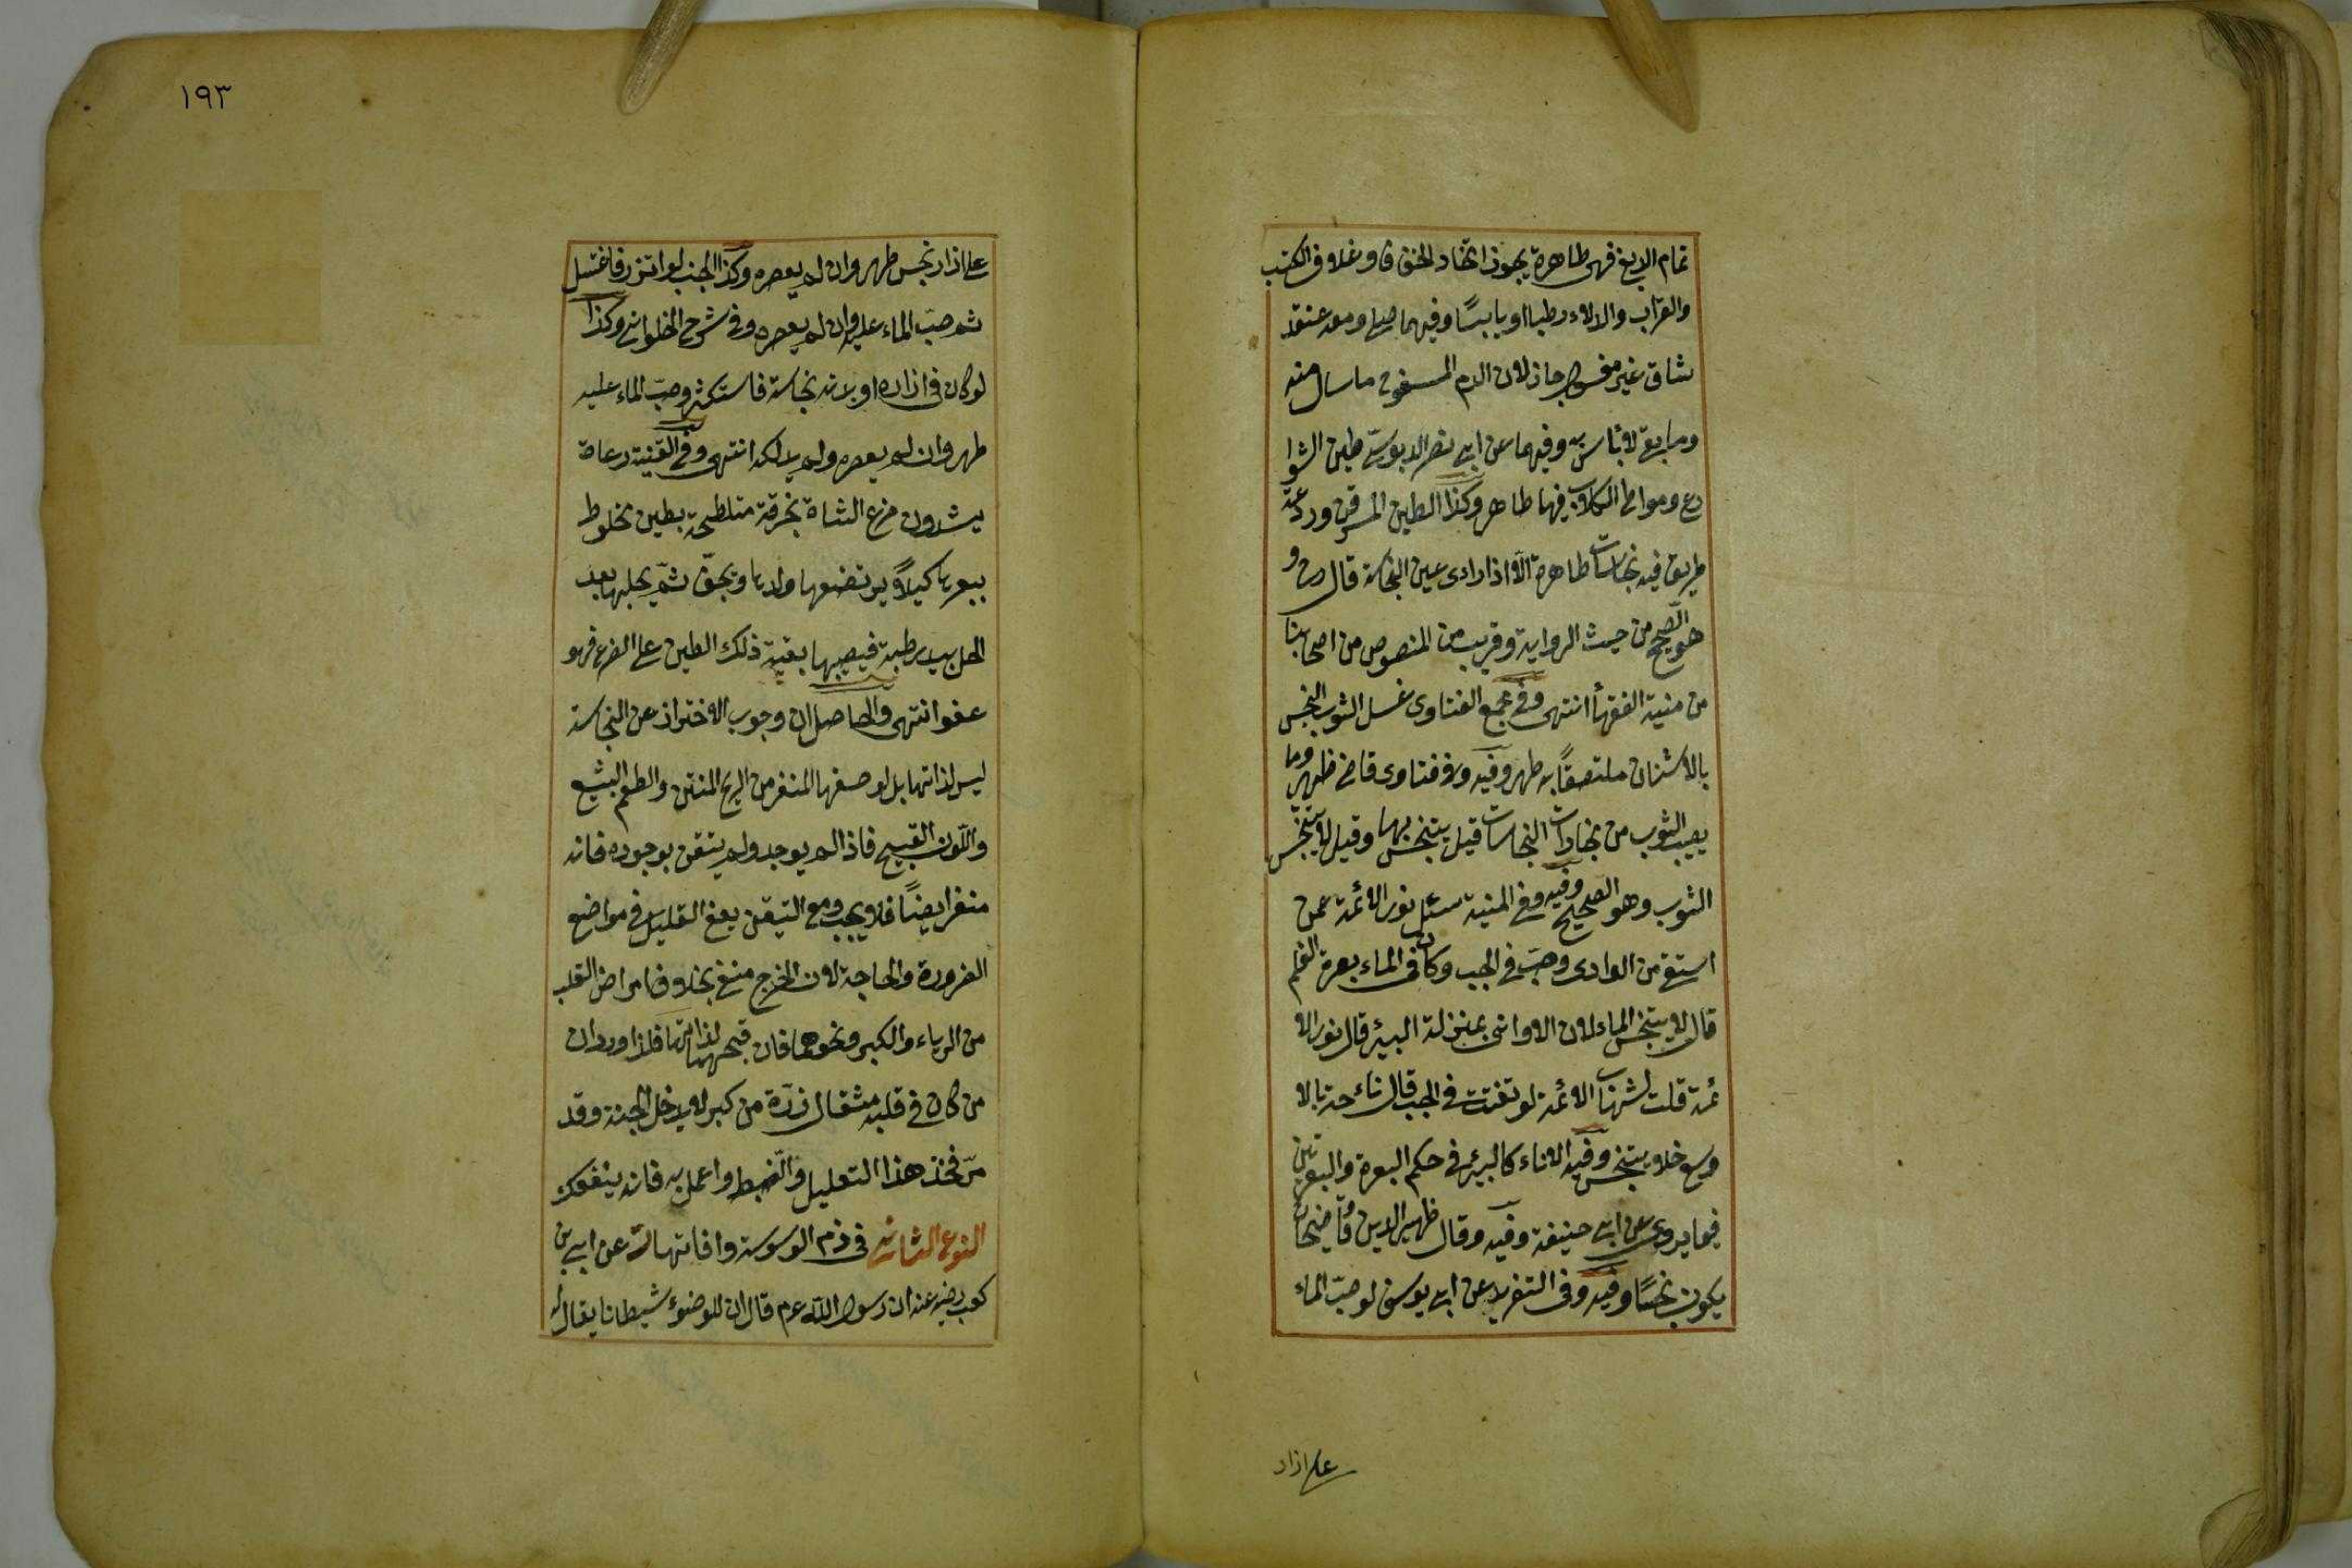 تمام الدبغ فهى طاهرة يجوز اتخاذ الخف فا وغلاف الكتب
والقراب والدلاء رطبا او يابسا وفيهما صلى ومعه عنقد
شاة غير مغسول جاز لان الدم المسفوح ما سال منه
وما بقى لا باس به وفيهما عن ابى نصر الدبوسى طين الشوا
رع ومواطى الكلاب فيها طاهر وكذا الطين المسرقن وردغة
طريق فيه نجاسات طاهرة الا اذا راى عين النجاسة قال رح و
هو الصحيح من حيث الرواية وقريب من المنصوص من اصحابنا
من منية الفقهأ انتهى وفى مجمع الفتاوى غسل الثوب النجس
بالاشنان ملتصقا به طهر وفيه وفى فتاوى قاضى ظهير وما
يصيب الثوب من بخارات النجاسات قيل يتنجس بها وقيل لا يتنجس
الثوب وهو الصحيح وفيه وفى المنية سئل نور الائمة عمن
استقى من الوادى وصب فى الجب وكان فى الماء بعرة الغنم
قال لا يتنجس الماء لان الاوانى بمنزلة البئر قال نور الا
ئمة قلت لشهاب الائمة لو تفتت فى الجب قال ناء حد تا الا
وسع فلا يتنجس وفيه الاناء كالبئر فى حكم البعرة والبعرتين
فيما يروى عن ابى حنيفة وفيه وقال ظهير الدين قاضيخان
يكون نجسا وفيه وفى التفريد عن ابى يوسف لو صب الماء
على ازار
١٩٣
على ازار نجس طهر وان لم يعصره وكذا الجنب لو اتزر فاغتسل
ثم صب الماء عليه وان لم يعصره وفى شرح الحلوانى وكذا
لو كان فى ازاره او بدنه نجاسة فاستكثر وصب الماء عليه
طهر وان لم يعصره ولم يدلكه انتهى وفى القنية رعاة
يشدون ضرع الشاة بخرقة متلطخة بطين مخلوط
ببعرها كيلا يرتضعها ولدها ويجف ثم يحلبها بعد
الحل بيد رطبة فيصيبها بقية ذلك الطين على الضرع فهو
عفو انتهى والحاصل ان وجوب الاختراز عن النجاسة
ليس لذاتها بل لوصفها المنفر من الريح المنتن والطعم البشيع
واللون القبيح فاذا لم يوجد ولم يتيقن بوجوده فانه
منفر ايضا فلا يجب ومع التيقن يعفى القليل فى مواضع
الضرورة والحاجة لان الحرج منفى بخلاف امراض القلب
من الرياء والكبر ونحوهما فان قبحهما لذاتها فلذا ورد ان
من كان فى قلبه مثقال ذرة من كبر لا يدخل الجنة وقد
مر فخذ هذا التعليل والضبط واعمل به فانه ينفعك
النوع الثانى فى ذم الوسوسة وافاتها ت عن ابى بن
كعب رضى عنه ان رسول الله عم قال ان للوضوء شيطانا يقال له